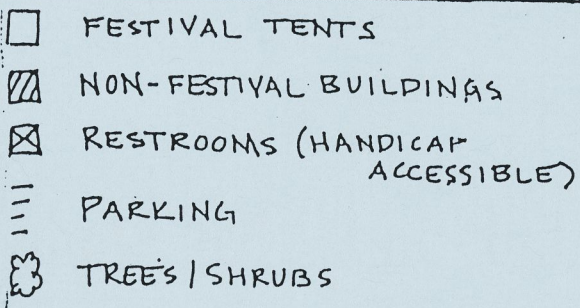 FESTIVAL TENTS
NON-FESTIVAL BUILDINGS
RESTROOMS (HANDICAP
ACCESSIBLE)
PARKING
TREES / SHRUBS